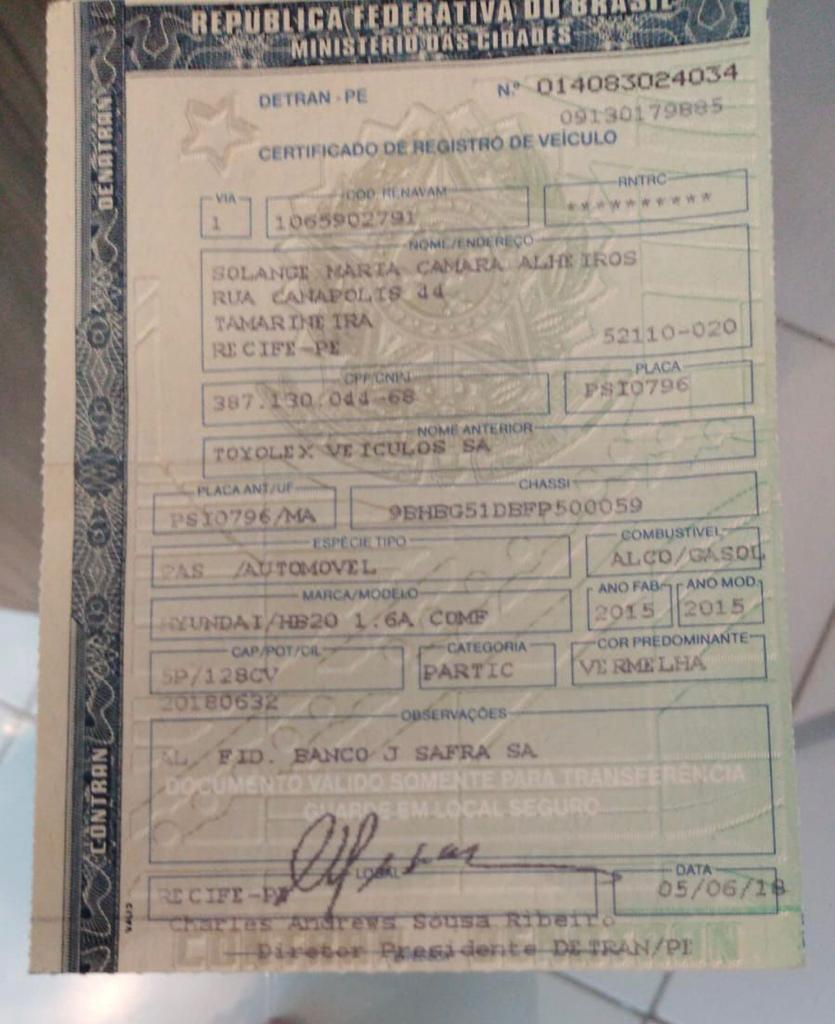 REPÚBLICA FEDERATIVA DO BRASIL
MINISTÉRIO DAS CIDADES
DENATRAN
CONTRAN
DETRAN - PE Nº 014083024034
09130179885
CERTIFICADO DE REGISTRO DE VEÍCULO
VIA CÓD. RENAVAM RNTRC
1 1065902791 **********
NOME/ENDEREÇO
SOLANGE MARIA CAMARA ALHEIROS
RUA CANAPOLIS 44
TAMARINEIRA
RECIFE-PE 52110-020
CPF/CNPJ PLACA
387.130.044-68 PSI0796
NOME ANTERIOR
TOYOLEX VEICULOS SA
PLACA ANT/UF CHASSI
PSI0796/MA 9BHBG51DBFP500059
ESPÉCIE TIPO COMBUSTÍVEL
PAS /AUTOMOVEL ALCO/GASOL
MARCA/MODELO ANO FAB. ANO MOD.
HYUNDAI/HB20 1.6A COMF 2015 2015
CAP/POT/CIL CATEGORIA COR PREDOMINANTE
5P/128CV PARTIC VERMELHA
20180632
OBSERVAÇÕES
AL. FID. BANCO J SAFRA SA
DOCUMENTO VÁLIDO SOMENTE PARA TRANSFERÊNCIA
GUARDE EM LOCAL SEGURO
LOCAL DATA
RECIFE-PE 05/06/18
Charles Andrews Sousa Ribeiro
Diretor Presidente DETRAN/PE